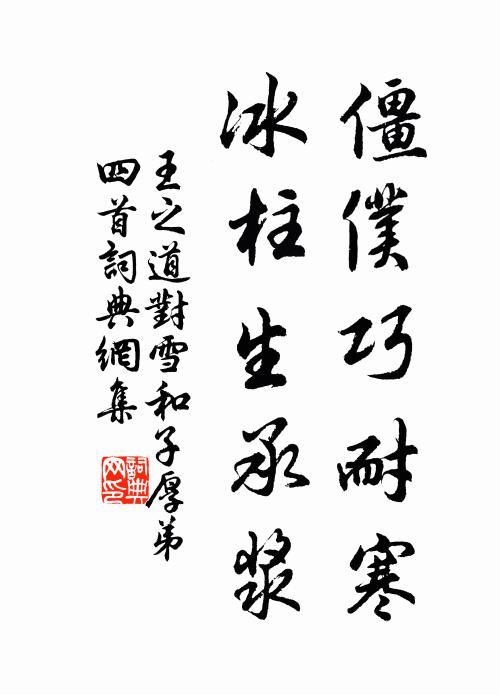 僵僕巧耐寒
冰柱生承漿
王之道對雪和子厚弟
四首詞典網集
詞典
网印